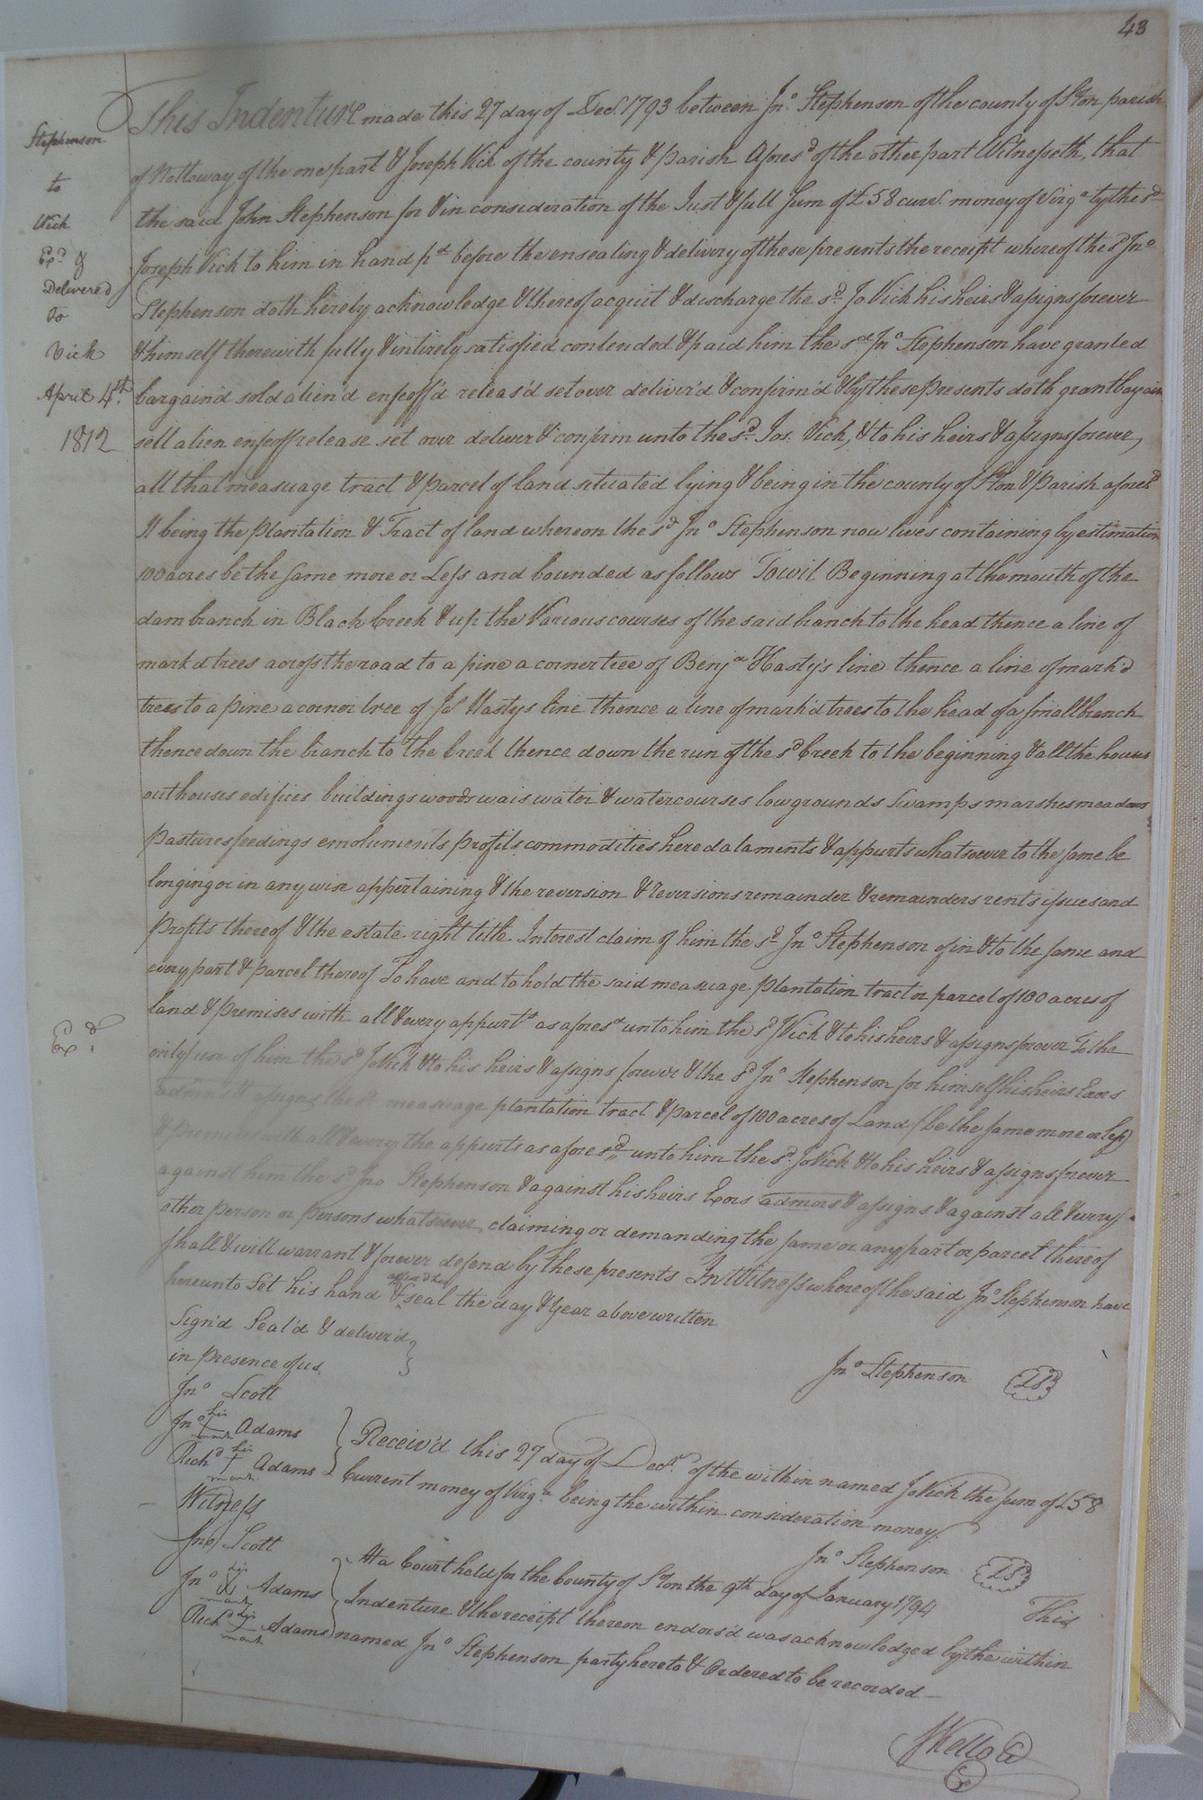 43
Stephenson
to
Vick
Exd. &
Delivered
to
Vick
April 4th.
1812
Exd.
This Indenture made this 27 day of Decr. 1793 between Jno. Stephenson of the county of Ston parish
of Nottoway of the one part & Joseph Vick of the county & Parish Aforesd. of the other part Witnesseth, that
the said John Stephenson for & in consideration of the Just & full sum of £58 curt. money of Virga. by the sd.
Joseph Vick to him in hand pd. before the ensealing & delivery of these presents the receipt whereof the sd. Jno.
Stephenson doth hereby acknowledge & thereof acquit & discharge the sd. Jo Vick his heirs & assigns forever
& himself therewith fully & intirely satisfied contended & paid him the sd. Jno. Stephenson have granted
bargain'd sold alien'd enfeoff'd releas'd set over deliver'd & confirm'd & by these presents doth grant bargain
sell alien enfeoff release set over deliver & confirm unto the sd. Jos. Vick, & to his heirs & assigns forever,
all that measuage tract & parcel of land situated lying & being in the county of Ston & Parish aforesd.
It being the plantation & Tract of land whereon the sd. Jno. Stephenson now lives containing by estimation
100 acres be the same more or Less and bounded as follows Towit Beginning at the mouth of the
dam branch in Black Creek & up the Various courses of the said branch to the head thence a line of
mark'd trees across the road to a pine a corner tree of Benja. Hasty's line thence a line of mark'd
trees to a pine a corner tree of Jos Hastys line thence a line of mark'd trees to the head of a small branch
thence down the branch to the Creek thence down the run of the sd. Creek to the beginning & all the houses
outhouses edifices buildings woods wais water & watercourses low grounds Swamps marshes meadows
Pastures feedings emoluments profits commodities heredataments & appurts whatsoever to the same be
longing or in any wise appertaining & the reversion & reversions remainder & remainders rents issues and
Profits thereof & the estate right title Interest claim of him the sd. Jno. Stephenson of in & to the same and
every part & parcel thereof To have and to hold the said measuage plantation tract or parcel of 100 acres of
land & Premises with all & every appurts. as aforesd. unto him the sd. Vick & to his heirs & assigns forever To the
only use of him the sd. Jo Vick & to his heirs & assigns forever & the sd. Jno. Stephenson for himself his heirs Exors
admors & assigns the sd. measuage plantation tract & parcel of 100 acres of Land (be the same more or less)
& premises with all & every the appurts as aforesd. unto him the sd. Jo Vick & to his heirs & assigns forever
against him the sd. Jno Stephenson & against his heirs Exors admors & assigns & against all & every
other person or persons whatsoever claiming or demanding the same or any part or parcel thereof
shall & will warrant & forever defend by these presents In Witness whereof the said Jno. Stephenson have
hereunto set his hand & affix'd his seal the day & year above written
Sign'd Seal'd & deliver'd
in presence of us
Jno. Stephenson LS
Jno. Scott
Jno. his mark Adams
Richd. his mark Adams
Receiv'd this 27 day of Decr. of the within named Jo Vick the sum of £58
Current money of Virga. being the within consideration money.
Witness
Jno Scott
Jno. Stephenson LS
Jno. his mark Adams
Richd. his mark Adams
At a Court held for the County of Ston the 9th day of January 1794 This
Indenture & the receipt thereon endors'd was acknowledged by the within
named Jno. Stephenson party hereto & Ordered to be recorded